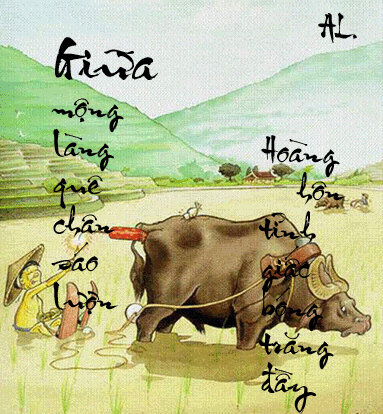 AL.
Giữa
mộng
làng
quê
chân
sao
lượn
Hoàng
hôn
tỉnh
giấc
bóng
trăng
đầy